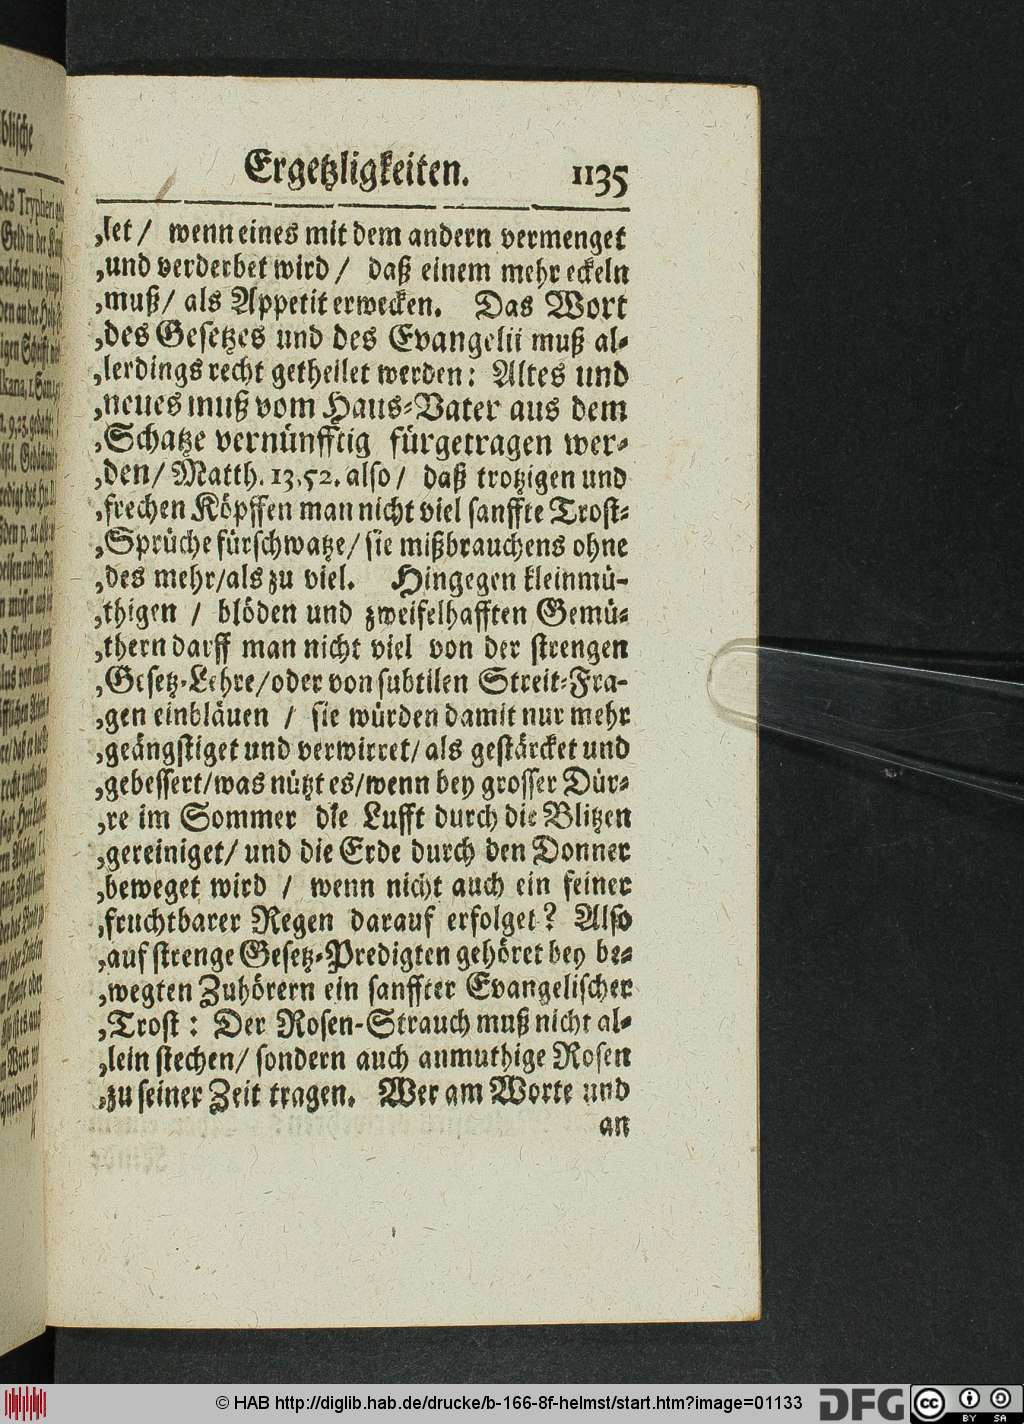 Ergetzligkeiten. 1135
‚let / wenn eines mit dem andern vermenget
‚und verderbet wird / daß einem mehr eckeln
‚muß / als Appetit erwecken. Das Wort
‚des Gesetzes und des Evangelii muß al-
‚lerdings recht getheilet werden: Altes und
‚neues muß vom Haus-Vater aus dem
‚Schatze vernünfftig fürgetragen wer-
‚den / Matth. 13,52. also / daß trotzigen und
‚frechen Köpffen man nicht viel sanffte Trost-
‚Sprüche fürschwatze / sie mißbrauchens ohne
‚des mehr / als zu viel. Hingegen kleinmü-
‚thigen / blöden und zweifelhafften Gemü-
‚thern darff man nicht viel von der strengen
‚Gesetz-Lehre / oder von subtilen Streit-Fra-
‚gen einbläuen / sie würden damit nur mehr
‚geängstiget und verwirret / als gestärcket und
‚gebessert / was nützt es / wenn bey grosser Dür-
‚re im Sommer die Lufft durch die Blitzen
‚gereiniget / und die Erde durch den Donner
‚beweget wird / wenn nicht auch ein feiner
‚fruchtbarer Regen darauf erfolget? Also
‚auf strenge Gesetz-Predigten gehöret bey be-
‚wegten Zuhörern ein sanffter Evangelischer
‚Trost: Der Rosen-Strauch muß nicht al-
‚lein stechen / sondern auch anmuthige Rosen
‚zu seiner Zeit tragen. Wer am Worte und
an
© HAB http://diglib.hab.de/drucke/b-166-8f-helmst/start.htm?image=01133 DFG cc BY SA